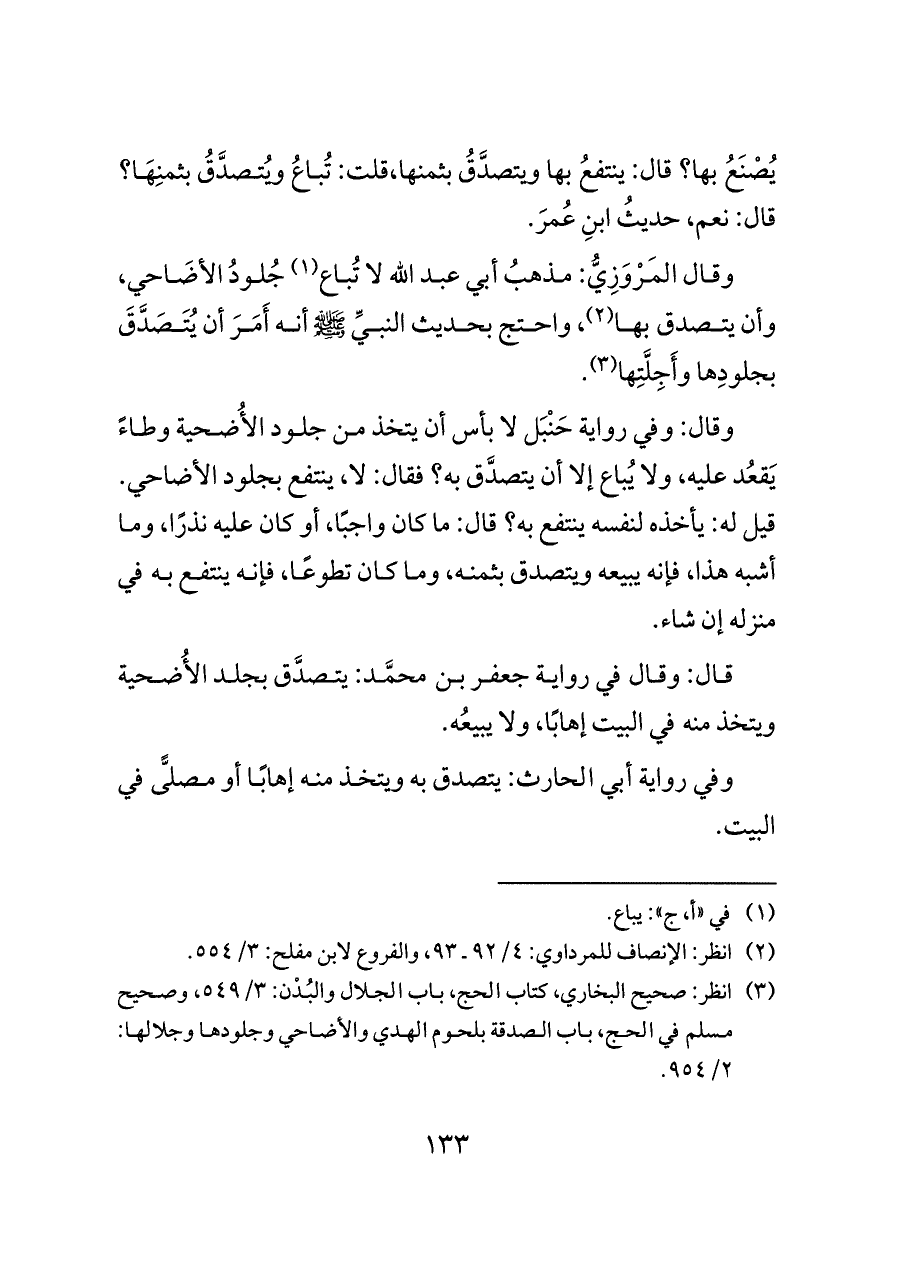 يُصْنَعُ بها؟ قال: ينتفعُ بها ويتصدَّقُ بثمنها،قلت: تُباعُ ويُتصدَّقُ بثمنِهَا؟
قال: نعم، حديثُ ابنِ عُمرَ.
وقال المَرْوَزِيُّ: مذهبُ أبي عبد الله لا تُباع(١) جُلودُ الأضَاحي،
وأن يتصدق بها(٢)، واحتج بحديث النبيِّ ﷺ أنه أَمَرَ أن يُتَصَدَّقَ
بجلودِها وأَجِلَّتِها(٣).
وقال: وفي رواية حَنْبَل لا بأس أن يتخذ من جلود الأُضحية وطاءً
يَقعُد عليه، ولا يُباع إلا أن يتصدَّق به؟ فقال: لا، ينتفع بجلود الأضاحي.
قيل له: يأخذه لنفسه ينتفع به؟ قال: ما كان واجبًا، أو كان عليه نذرًا، وما
أشبه هذا، فإنه يبيعه ويتصدق بثمنه، وما كان تطوعًا، فإنه ينتفع به في
منزله إن شاء.
قال: وقال في رواية جعفر بن محمَّد: يتصدَّق بجلد الأُضحية
ويتخذ منه في البيت إهابًا، ولا يبيعُه.
وفي رواية أبي الحارث: يتصدق به ويتخذ منه إهابًا أو مصلًّى في
البيت.
(١) في «أ، ج»: يباع.
(٢) انظر: الإنصاف للمرداوي: ٤/ ٩٢ ـ ٩٣، والفروع لابن مفلح: ٣/ ٥٥٤.
(٣) انظر: صحيح البخاري، كتاب الحج، باب الجلال والبُدْن: ٣/ ٥٤٩، وصحيح
مسلم في الحج، باب الصدقة بلحوم الهدي والأضاحي وجلودها وجلالها:
٢/ ٩٥٤.
١٣٣